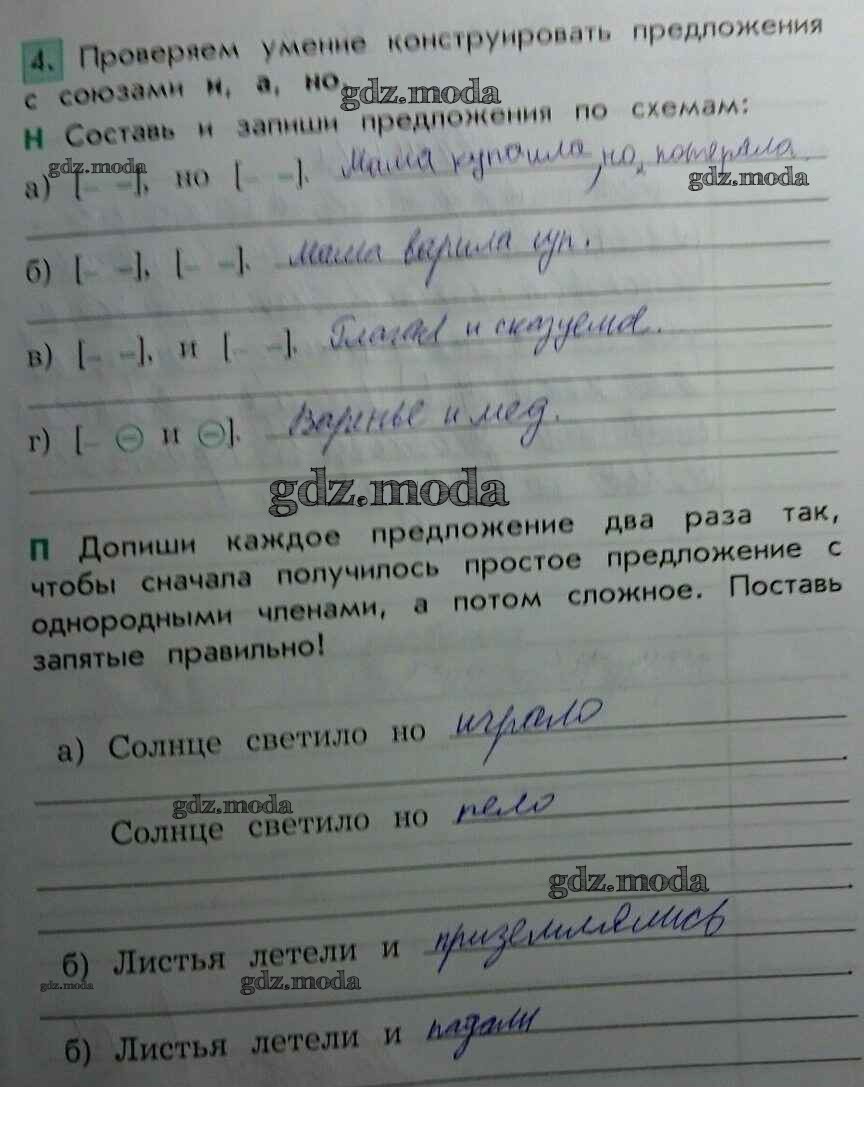 4. Проверяем умение конструировать предложения
с союзами и, а, но.
gdz.moda
Н Составь и запиши предложения по схемам:
gdz.moda
а) [– –], но [– –]. Мама купошла, но, потеряла.
gdz.moda
б) [– –], [– –]. Мама варила суп.
в) [– –], и [– –]. Глагол и сказуемое.
г) [– ⊖ и ⊖]. Варенье и мед.
gdz.moda
П Допиши каждое предложение два раза так,
чтобы сначала получилось простое предложение с
однородными членами, а потом сложное. Поставь
запятые правильно!
а) Солнце светило но играло
.
gdz.moda
Солнце светило но пело
gdz.moda
.
б) Листья летели и приземлялись
gdz.moda
gdz.moda
.
б) Листья летели и падали